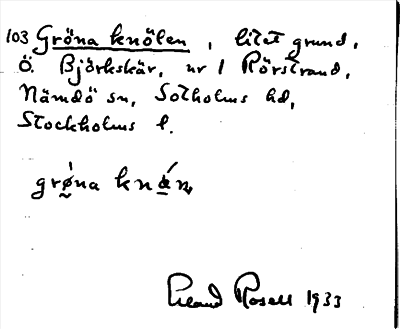 103 Gröna knölen, litet grund,
Ö. Björkskär, ur 1 Rörstrand,
Nämdö sn, Sotholms hd,
Stockholms l.
grøna
Erland Rosell 1933